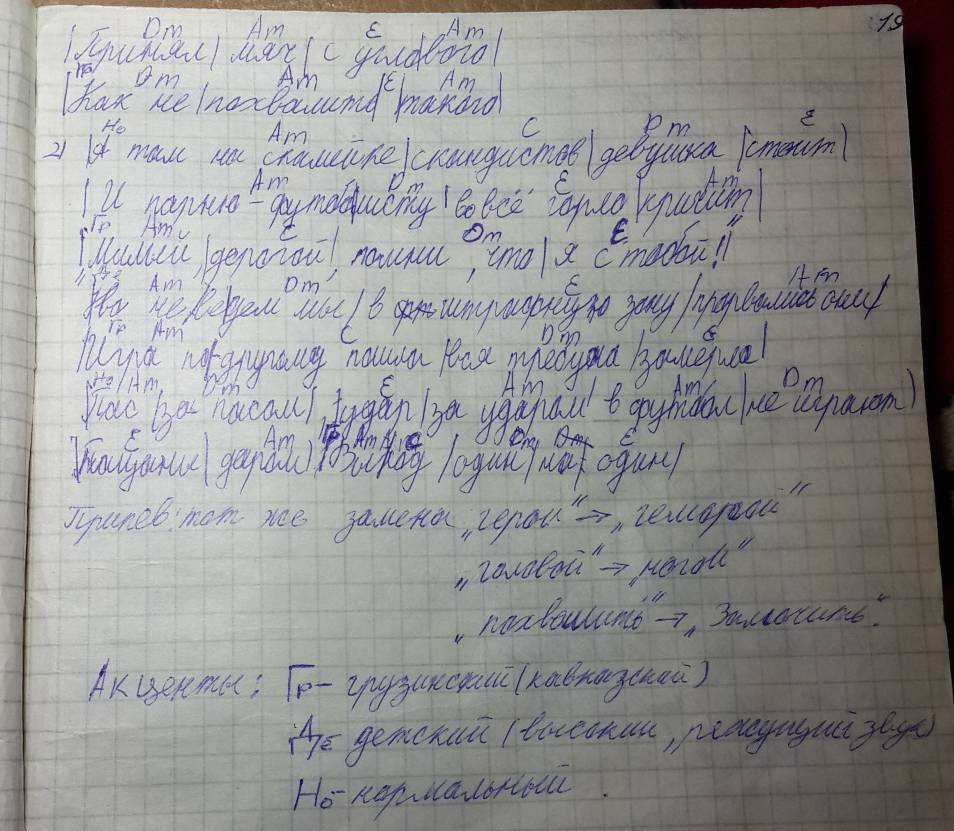 19
Dm Am E Am
|Принял| мяч |с углового|
Гр Dm Am E Am
|Как не |похвалить| |такого|
Но Am C Dm E
2) |А там на скамейке |скандистов |девушка |стоит|
Am Dm E Am
|И парню-футболисту |во всё горло |кричит|
Гр Am E Dm E
|"Милый, |дорогой, помни, что |я с тобой!"|
Де Am Dm E Am
Но не ведем мы |в штрафную зону |прорвались они|
Гр Am C Dm E
|Игра по-другому пошла |вся трибуна |замерла|
Но Am Dm E Am Am Dm
|Пас |за пасом|, |удар |за ударом| в футбол |не играют|
E Am Гр Am C Dm E
|Пацаны |даром| |Выход |один |на один|
Припев: тот же замена "герой" → "геморой"
"головой" → "ногой"
"похвалить" → "Замочить".
Акценты: Гр - грузинский (кавказский)
Де - детский (высокий, режущий звук)
Но - нормальный.